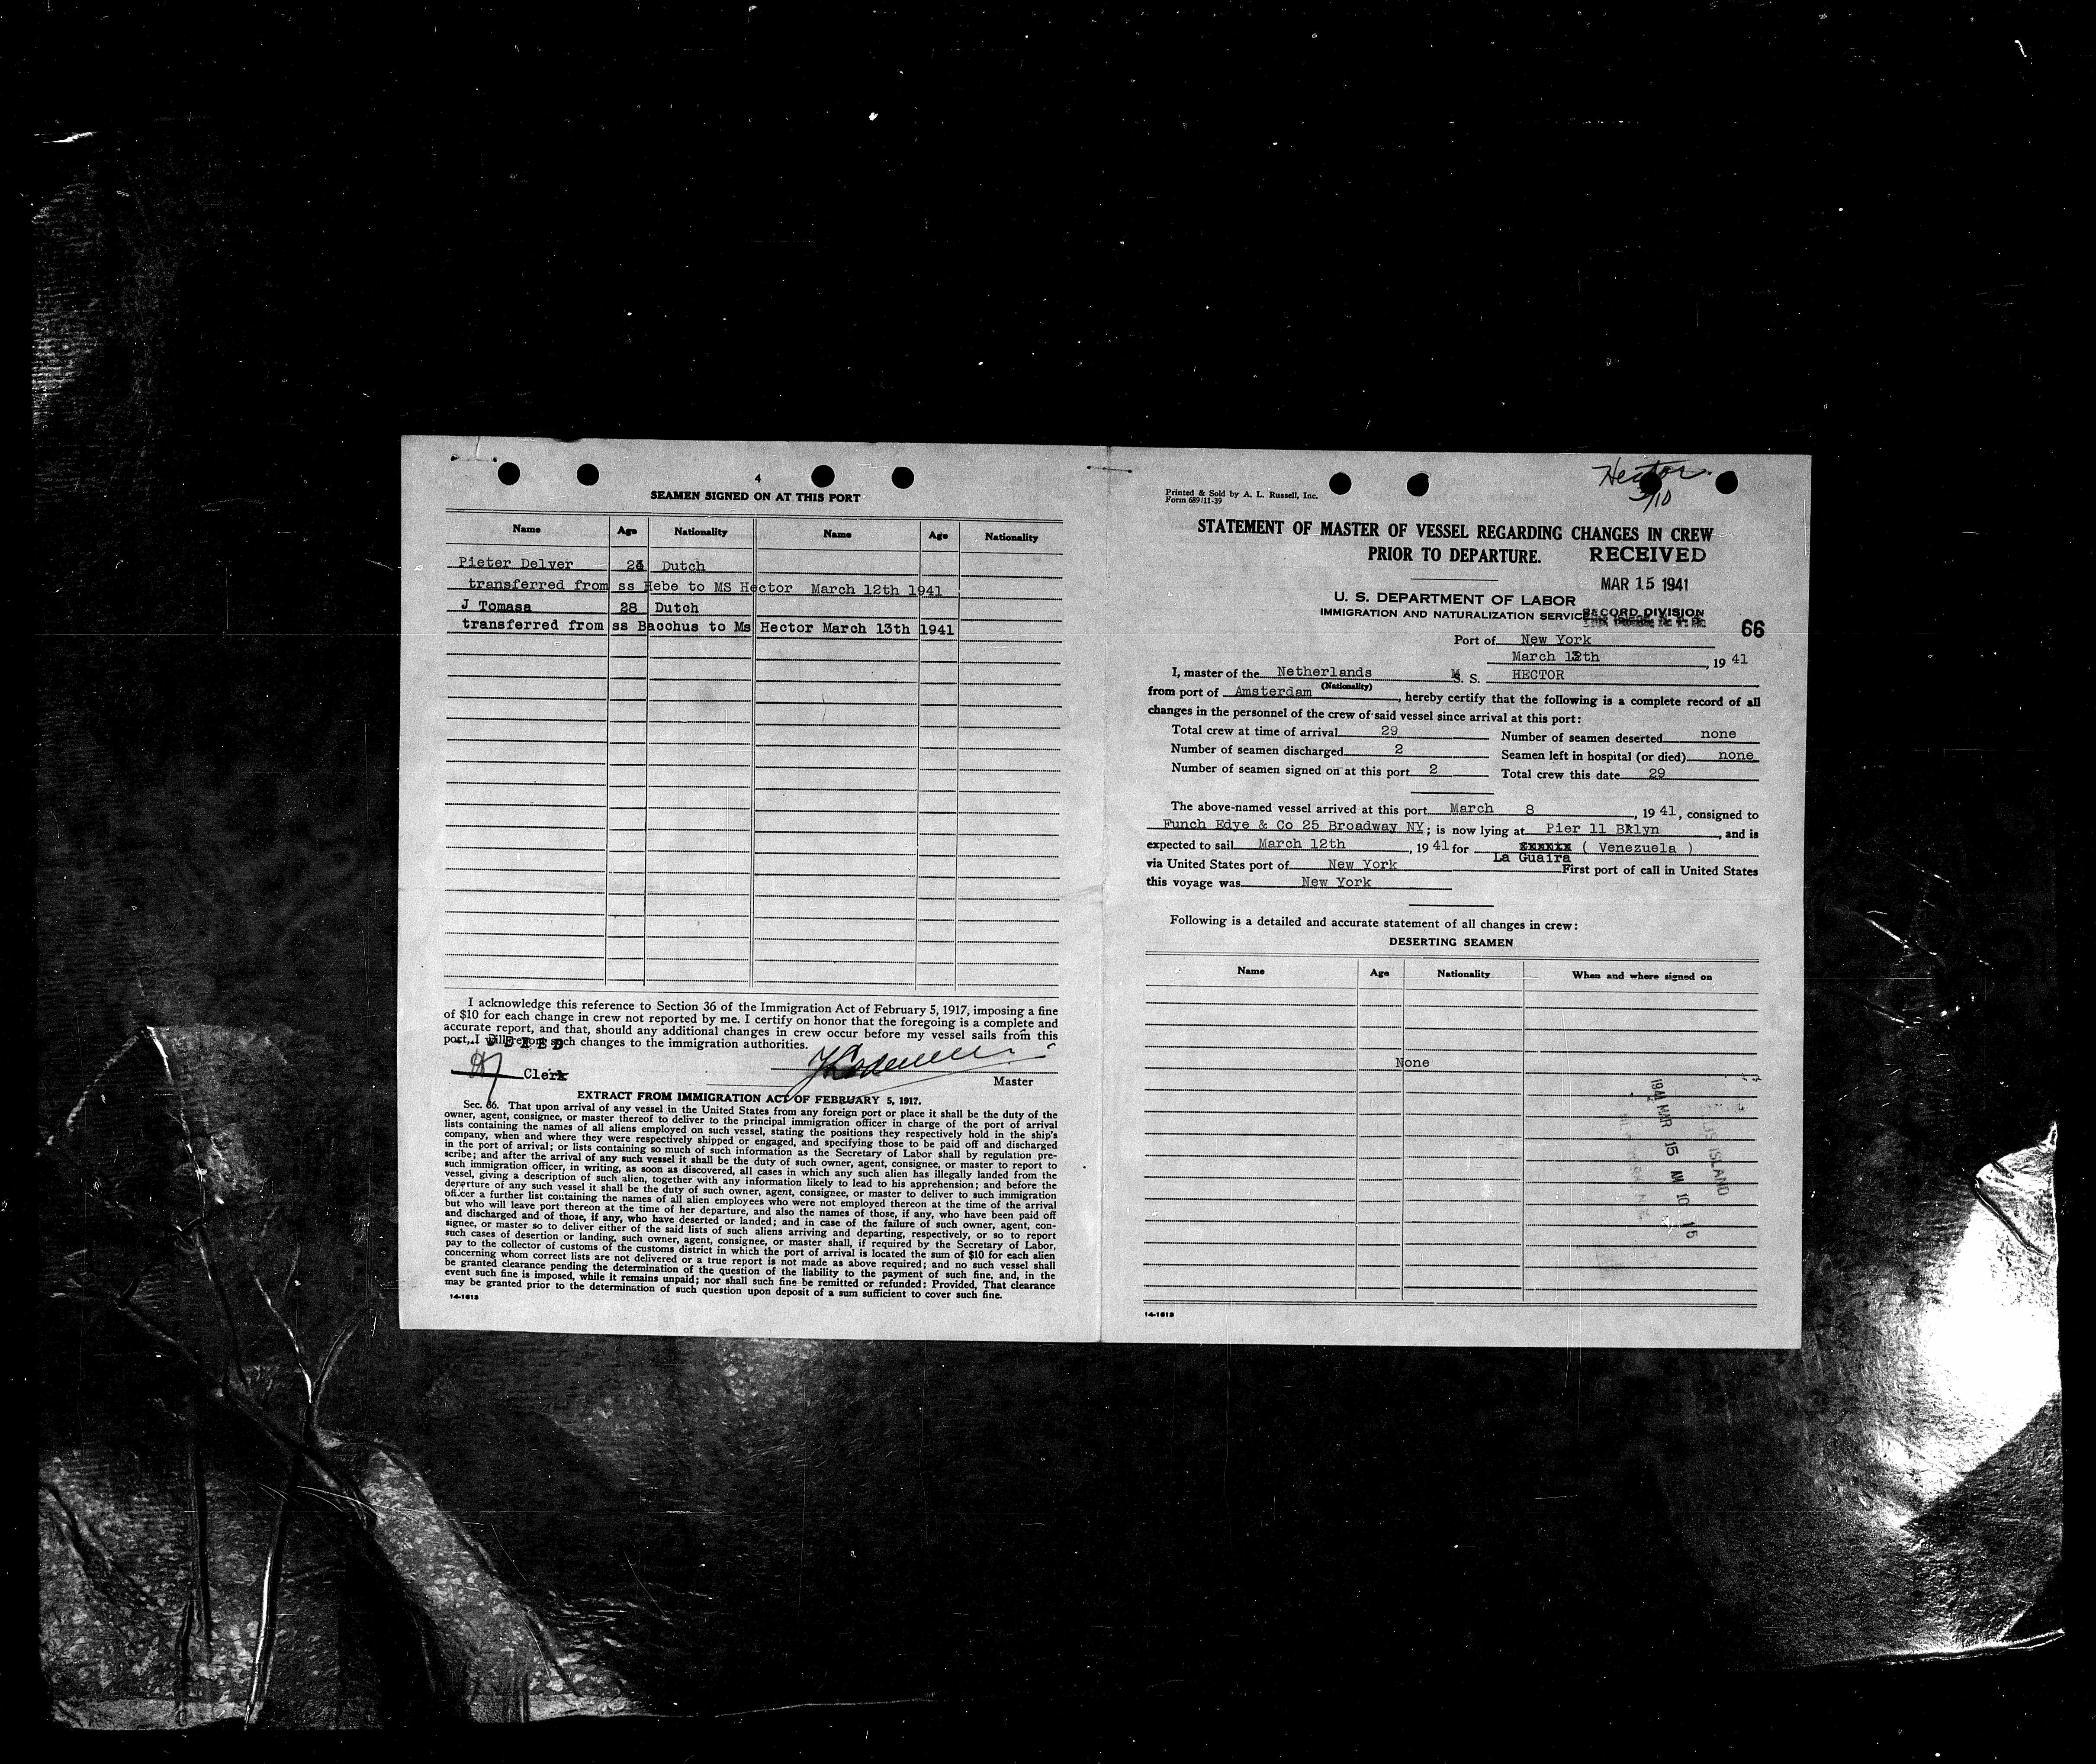 4
SEAMEN SIGNED ON AT THIS PORT
Name Age Nationality Name Age Nationality
Pieter Delver Dutch
transferred from ss Hebe to MS Hector March 12th 1941
J Tomasa 28 Dutch
transferred from ss Bacchus to Ms Hector March 13th 1941
I acknowledge this reference to Section 36 of the Immigration Act of February 5, 1917, imposing a fine
of $10 for each change in crew not reported by me. I certify on honor that the foregoing is a complete and
accurate report, and that, should any additional changes in crew occur before my vessel sails from this
port, I will report such changes to the immigration authorities.
Clerk
Master
EXTRACT FROM IMMIGRATION ACT OF FEBRUARY 5, 1917.
Sec. 36. That upon arrival of any vessel in the United States from any foreign port or place it shall be the duty of the
owner, agent, consignee, or master thereof to deliver to the principal immigration officer in charge of the port of arrival
lists containing the names of all aliens employed on such vessel, stating the positions they respectively hold in the ship's
company, when and where they were respectively shipped or engaged, and specifying those to be paid off and discharged
in the port of arrival; or lists containing so much of such information as the Secretary of Labor shall by regulation pre-
scribe; and after the arrival of any such vessel it shall be the duty of such owner, agent, consignee, or master to report to
such immigration officer, in writing, as soon as discovered, all cases in which any such alien has illegally landed from the
vessel, giving a description of such alien, together with any information likely to lead to his apprehension; and before the
departure of any such vessel it shall be the duty of such owner, agent, consignee, or master to deliver to such immigration
officer a further list containing the names of all alien employees who were not employed thereon at the time of the arrival
but who will leave port thereon at the time of her departure, and also the names of those, if any, who have been paid off
and discharged and of those, if any, who have deserted or landed; and in case of the failure of such owner, agent, con-
signee, or master so to deliver either of the said lists of such aliens arriving and departing, respectively, or so to report
such cases of desertion or landing, such owner, agent, consignee, or master shall, if required by the Secretary of Labor,
pay to the collector of customs of the customs district in which the port of arrival is located the sum of $10 for each alien
concerning whom correct lists are not delivered or a true report is not made as above required; and no such vessel shall
be granted clearance pending the determination of the question of the liability to the payment of such fine, and, in the
event such fine is imposed, while it remains unpaid; nor shall such fine be remitted or refunded: Provided, That clearance
may be granted prior to the determination of such question upon deposit of a sum sufficient to cover such fine.
14-1613
Hector
3/10
Printed & Sold by A. L. Russell, Inc.
Form 689:11-39
STATEMENT OF MASTER OF VESSEL REGARDING CHANGES IN CREW
PRIOR TO DEPARTURE.
RECEIVED
MAR 15 1941
U. S. DEPARTMENT OF LABOR
IMMIGRATION AND NATURALIZATION SERVICE
RECORD DIVISION
66
Port of New York
March 13th, 19 41
I, master of the Netherlands M. S. HECTOR
(Nationality)
from port of Amsterdam, hereby certify that the following is a complete record of all
changes in the personnel of the crew of said vessel since arrival at this port:
Total crew at time of arrival 29 Number of seamen deserted none
Number of seamen discharged 2 Seamen left in hospital (or died) none
Number of seamen signed on at this port 2 Total crew this date 29
The above-named vessel arrived at this port March 8, 19 41, consigned to
Funch Edye & Co 25 Broadway NY; is now lying at Pier 11 Bklyn, and is
expected to sail March 12th, 19 41 for ( Venezuela )
La Guaira
via United States port of New York First port of call in United States
this voyage was New York
Following is a detailed and accurate statement of all changes in crew:
DESERTING SEAMEN
Name Age Nationality When and where signed on
None
1941 MAR 15 AM 10 15
14-1613